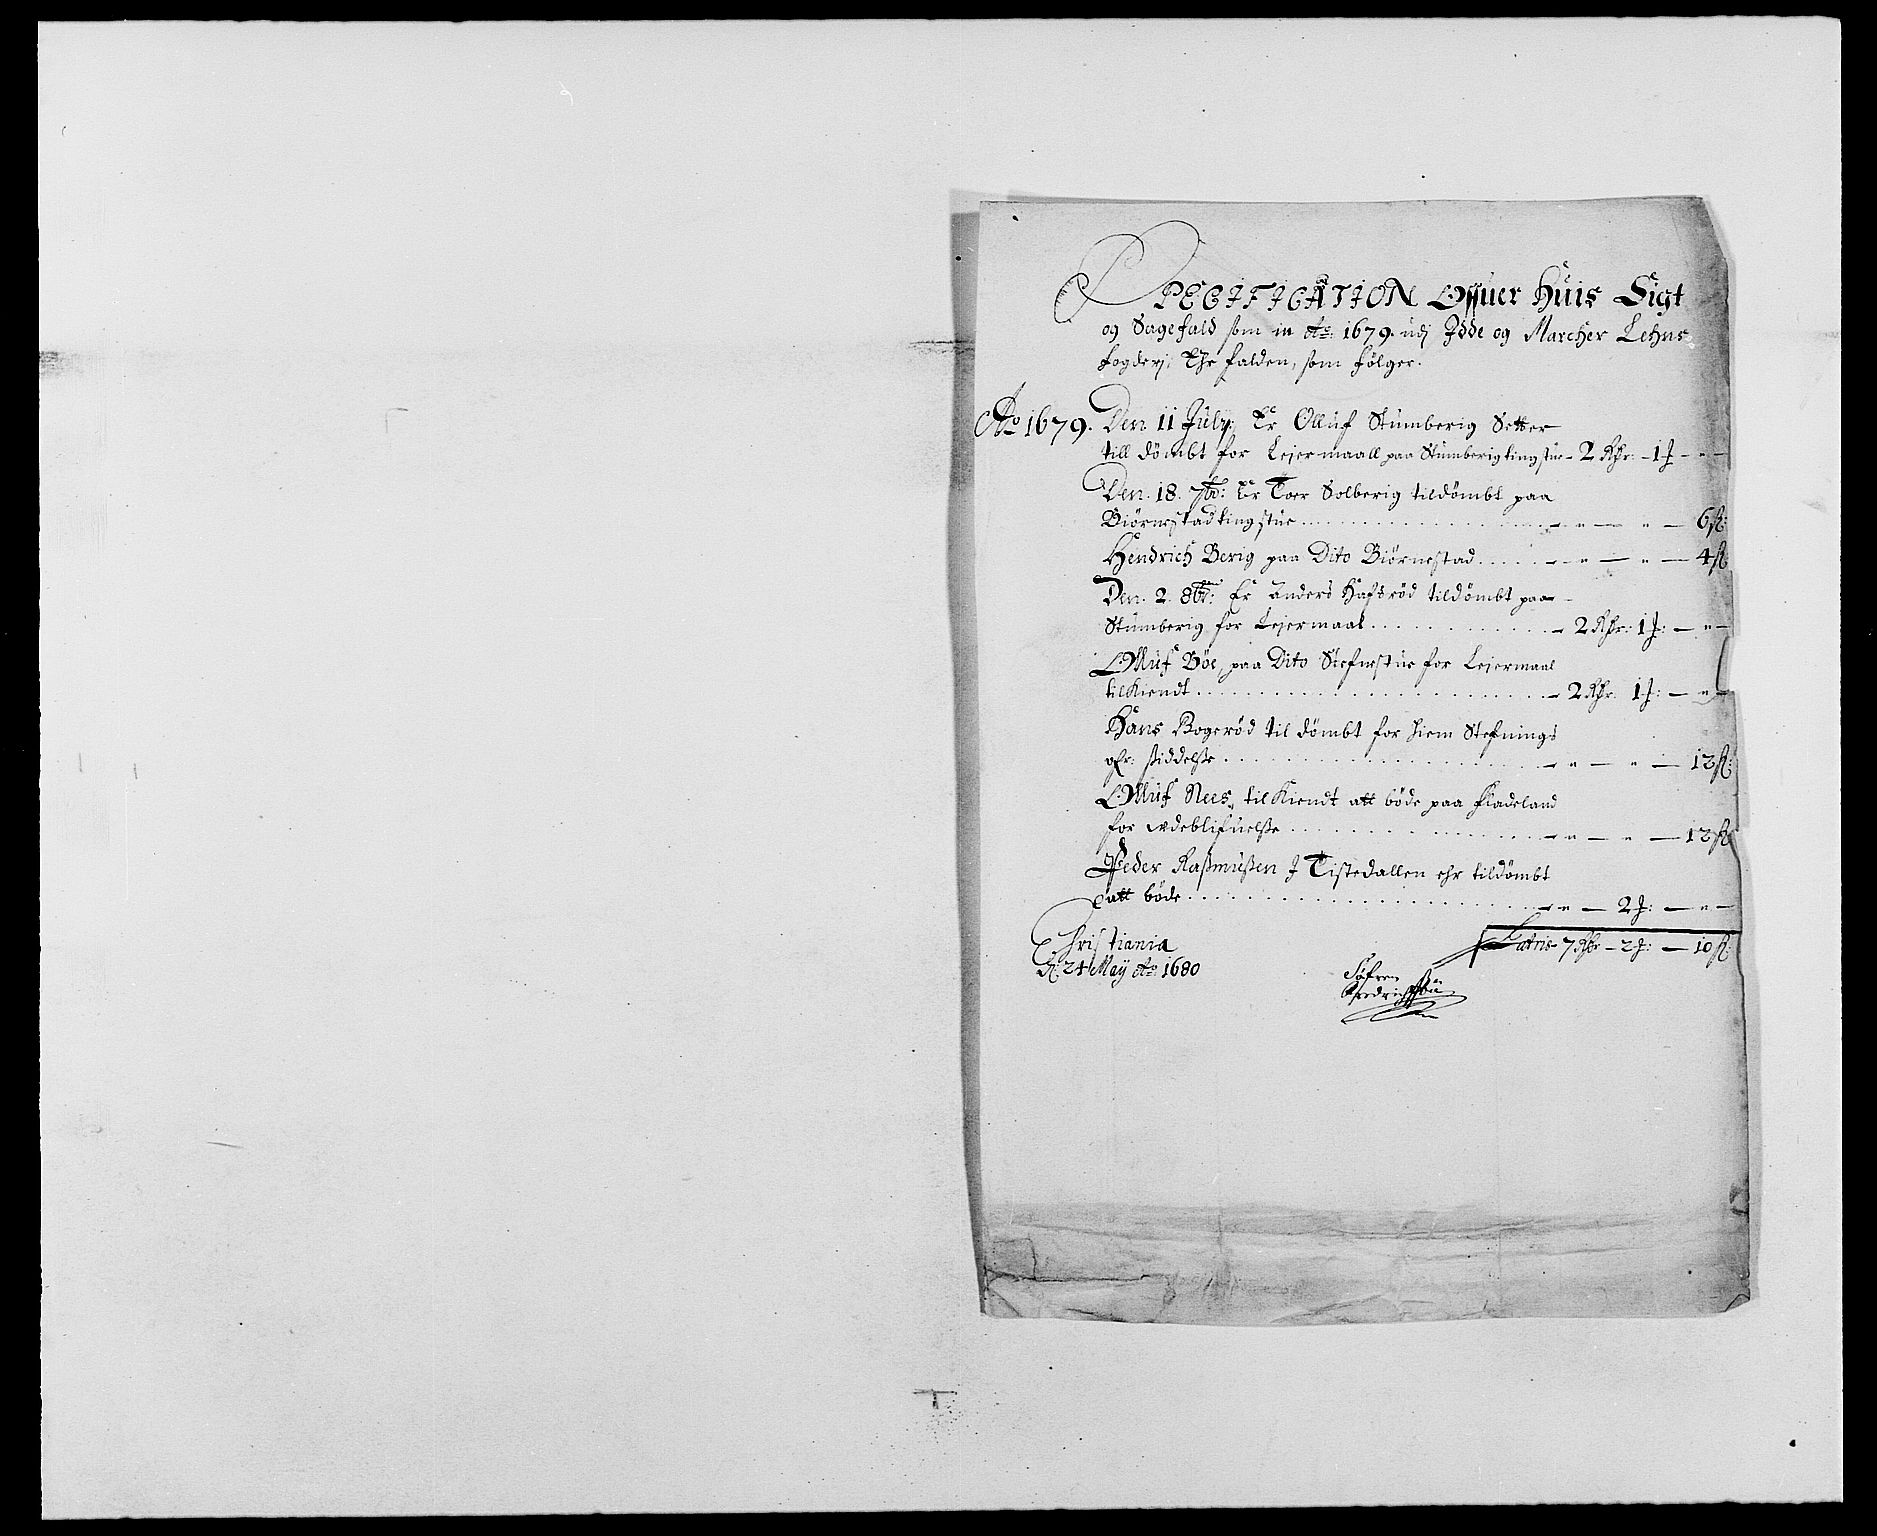 SPECIFICATION Offuer Huis Sigt
og Sagefald som in Ao: 1679. udj Idde og Marcher Lehns
fogderj, Ehr falden, som følger.
Ao 1679. Den 11 July, Er Olluf Stumberig Setter
till dømbt for Leiermaall paa Stumberig tingstue - 2 Rdr: - 1 ƒ - " -
Den. 18. 7br: Er Toer Solberig tildømbt paa
Biørnstad tingstue - " - " - 6 ß:
Hendrich Berig paa Dito Biørnstad - " - " - 4 ß
Den. 2. 8br: Er Anders Hafsrød tildømbt paa
Stumberig for Leiermaal - 2 Rdr: 1 ƒ: - " -
Olluf Böe, paa Dito Stefnstue for Leiermaal
tilKiendt - 2 Rdr. 1 ƒ: - " -
Hans Bogerød til dømbt for hiem Stefnings
ofr: siddelsse - " - " - 12 ß:
Olluf Nees, tilKiendt att böde paa Fladeland
for udeblifuelsse - " - " - 12 ß
Peder Rassmussen J Tistedallen ehr tildømbt
att böde - " - 2 ƒ: - " -
Latris 7 Rdr - 2 ƒ: - 10 ß:
Christiania
D. 24 Maÿ Ao: 1680
Söfren